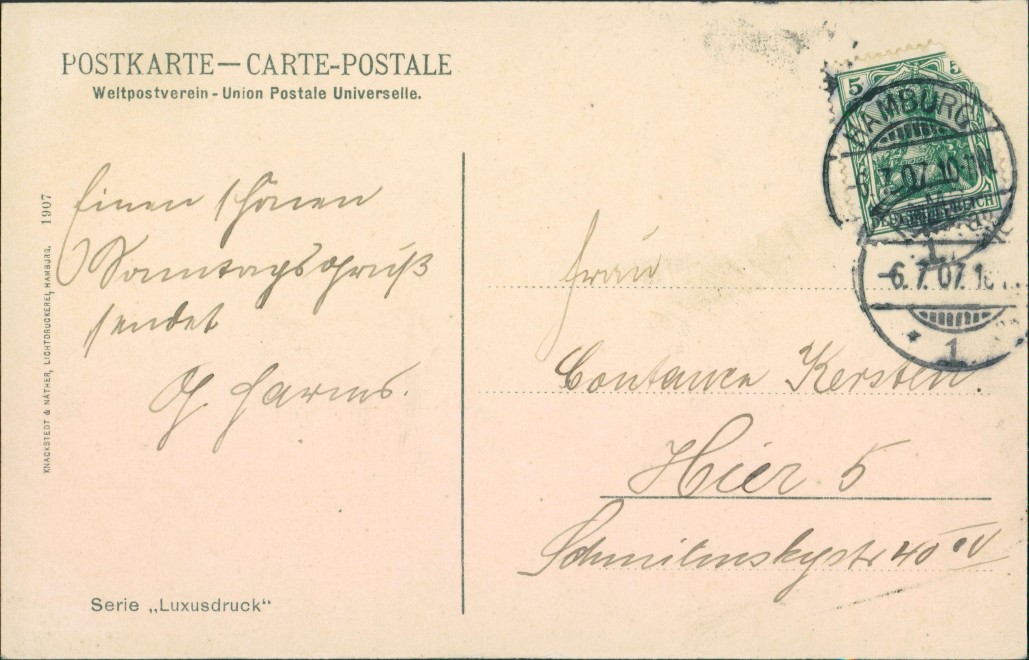 POSTKARTE — CARTE-POSTALE
Weltpostverein - Union Postale Universelle.
Einen schönen
Sonntagsgruß
sendet
G. Harms.
KNACKSTEDT & NÄTHER, LICHTDRUCKEREI, HAMBURG. 1907
Serie „Luxusdruck“
5 5
DEUTSCHES REICH
HAMBURG
-6.7.07.10
1
-6.7.07.10
* 1
Frau
Kersten.
Hier 5
Schmilinskystr 40